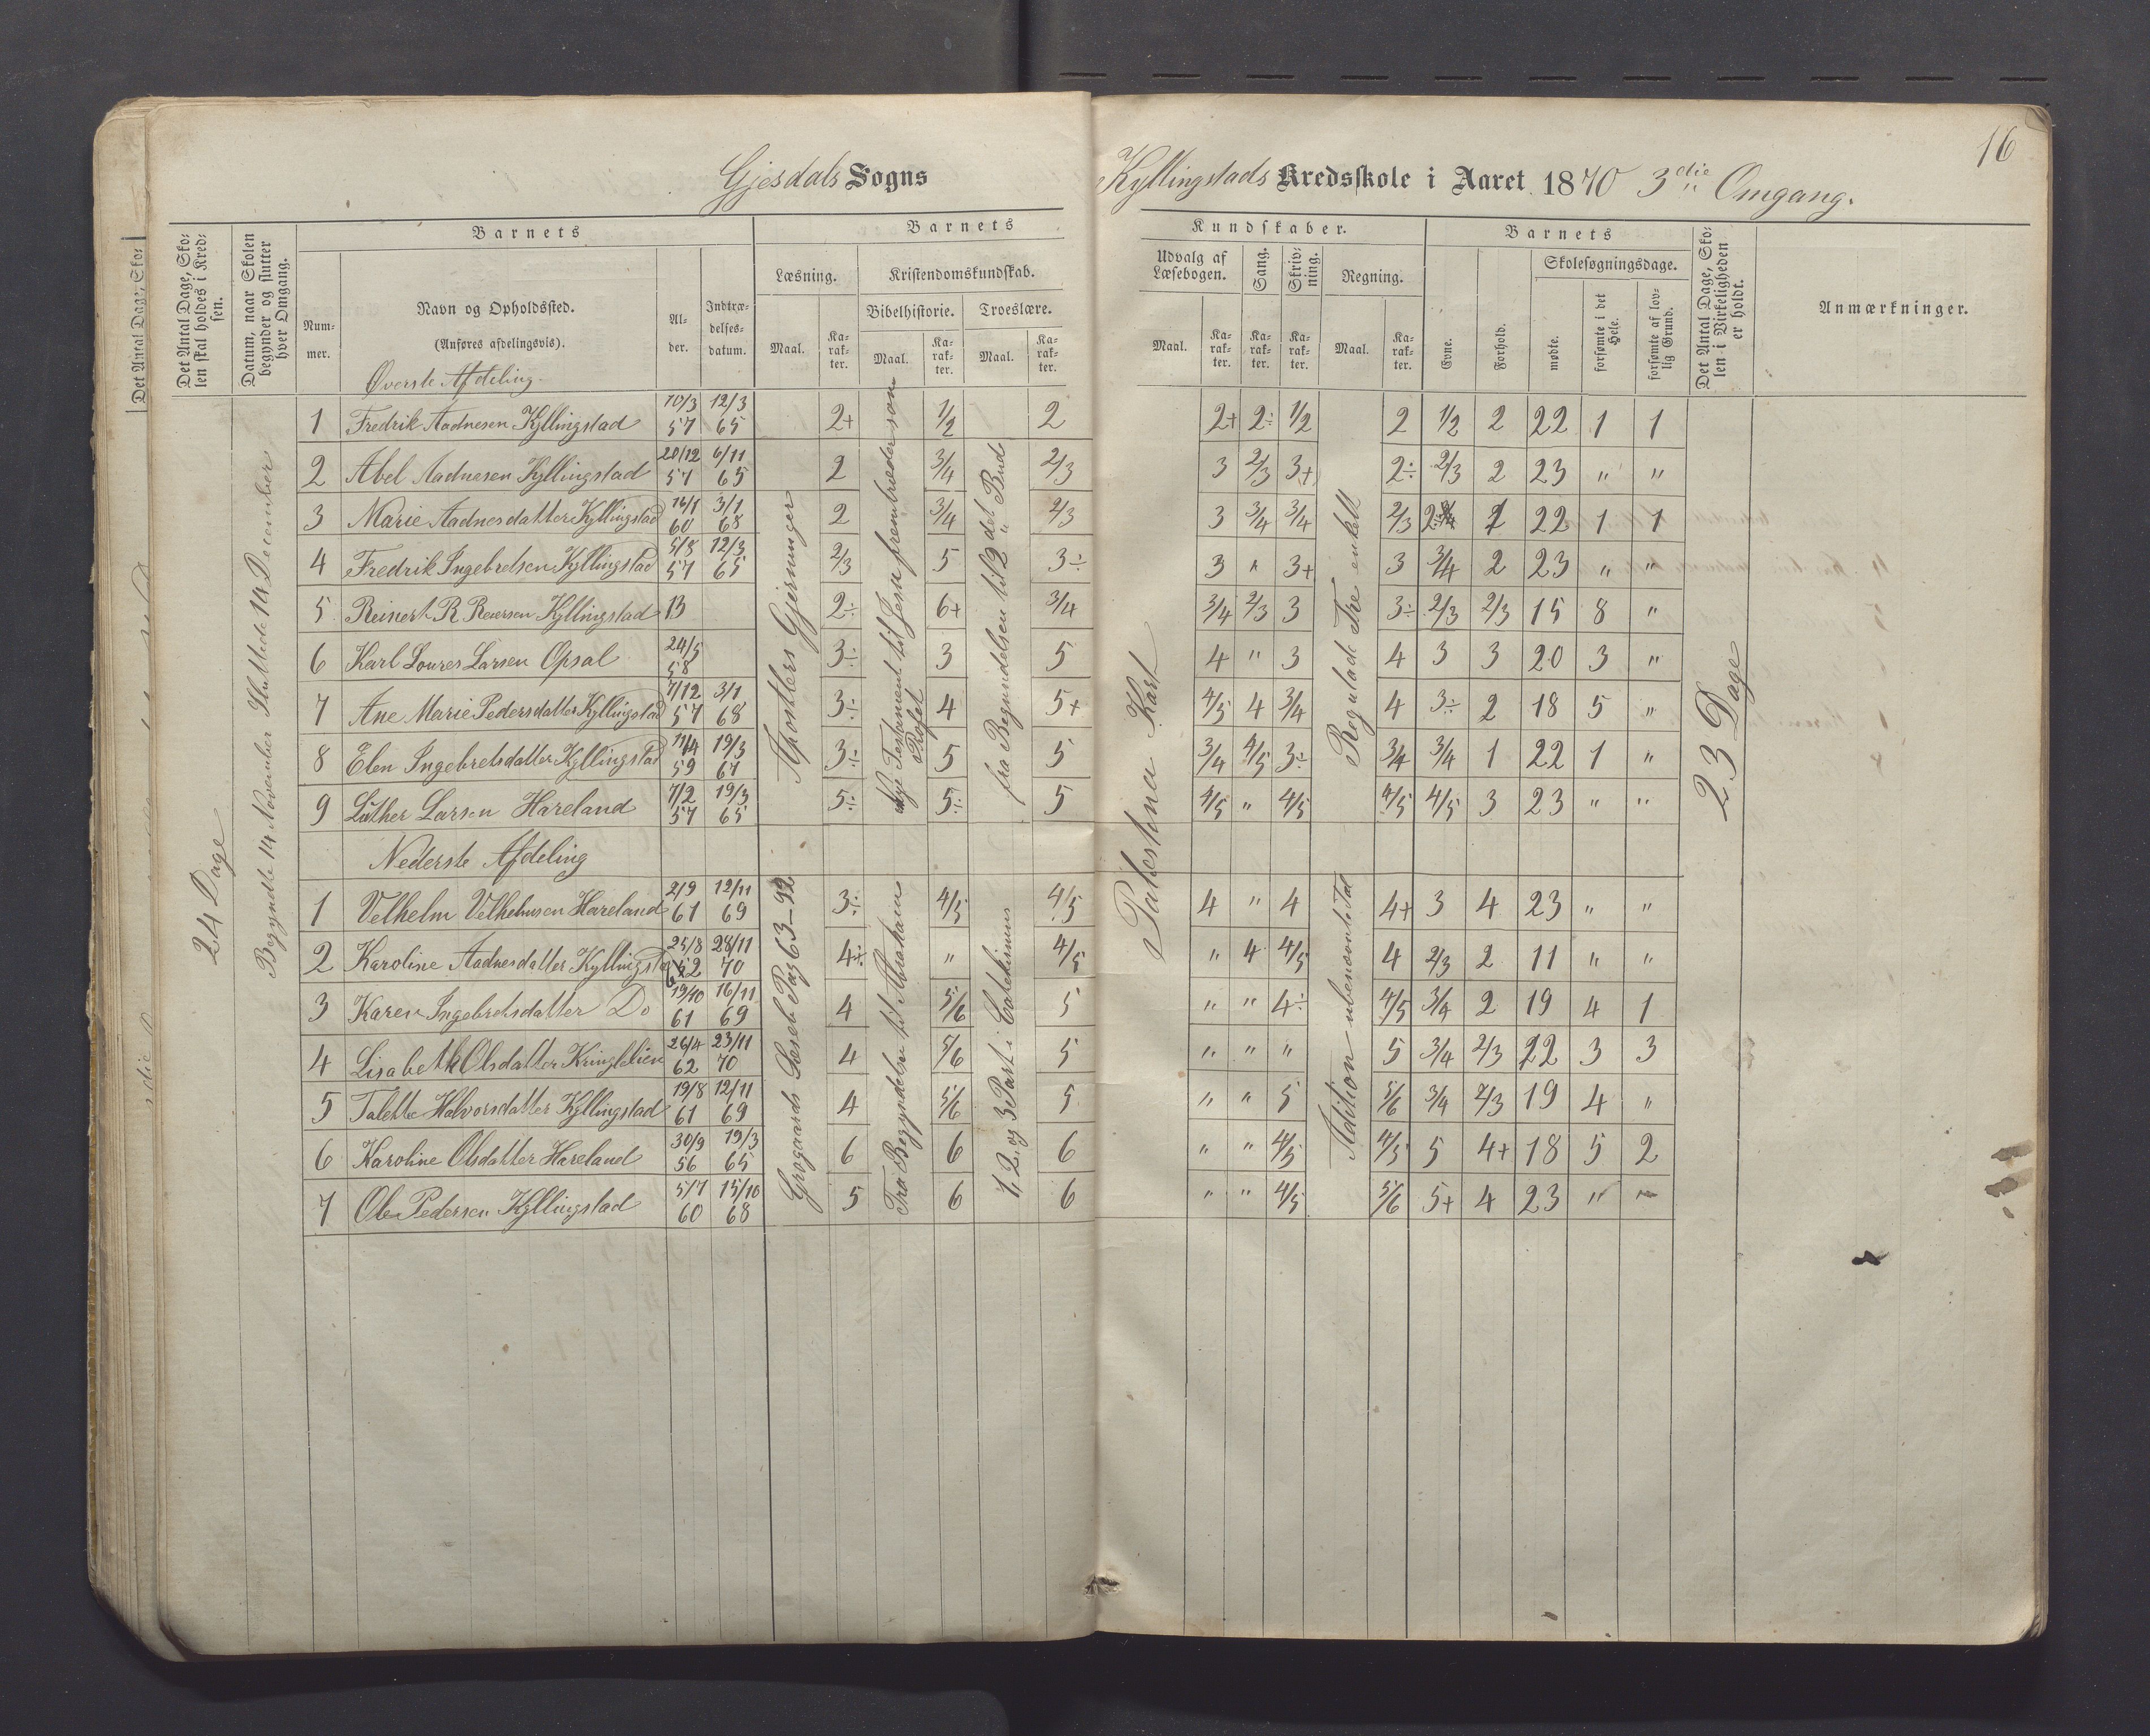 16
Gjesdals Sogns Kyllingstads Kredsskole i Aaret 1870 3die Omgang.
Det Antal Dage, Sko-
Det Antal Dage, Sko-
len skal holdes i Kred-
sen.
Datum, naar Skolen
begynder og slutter
hver Omgang.
Barnets
Num-
mer.
Navn og Opholdssted.
(Anføres afdelingsvis).
Al-
der.
Indtræ-
delses-
datum.
Barnets
Læsning.
Maal.
Ka-
rak-
ter.
Kristendomskundskab.
Bibelhistorie.
Maal.
Ka-
rak-
ter.
Troeslære.
Maal.
Ka-
rak-
ter.
Kundskaber.
Udvalg af
Læsebogen.
Maal.
Ka-
rak-
ter.
Sang.
Ka-
rak-
ter.
Skriv-
ning.
Ka-
rak-
ter.
Regning.
Maal.
Ka-
rak-
ter.
Barnets
Evne.
Forhold.
Skolesøgningsdage.
mødte.
forsømte i det
Hele.
forsømte af lov-
lig Grund.
Det Antal Dage, Sko-
len i Virkeligheden
er holdt.
Anmærkninger.
24 Dage
Begyndte 14 November Sluttede 14 December
Øverste Afdeling
1 Fredrik Aadnesen Kyllingstad 10/3 57 12/3 65 2+ 1/2 2 2+ 2÷ 1/2 2 1/2 2 22 1 1
2 Abel Aadnesen Kyllingstad 20/12 57 6/11 65 2 3/4 2/3 3 2/3 3+ 2÷ 2/3 2 23 " "
3 Marie Aadnesdatter Kyllingstad 16/1 60 3/1 68 2 3/4 2/3 3 3/4 3/4 2/3 2÷ 1 22 1 1
4 Fredrik Ingebretsen Kyllingstad 5/8 57 12/3 65 2/3 5 3÷ 3 " 3+ 3 3/4 2 23 " "
5 Reinert R Reiersen Kyllingstad 13 2÷ 6+ 3/4 3/4 2/3 3 3÷ 2/3 2/3 15 8 "
6 Karl Loures Larsen Opsal 24/5 58 3÷ 3 5 4 " 3 4 3 3 20 3 "
7 Ane Marie Pedersdatter Kyllingstad 7/12 57 3/1 68 3÷ 4 5+ 4/5 4 3/4 4 3÷ 2 18 5 "
8 Elen Ingebretsdatter Kyllingstad 11/4 59 19/3 67 3÷ 5 5 3/4 4/5 3÷ 3/4 3/4 1 22 1 "
9 Luther Larsen Hareland 7/2 57 19/3 65 5÷ 5÷ 5 4/5 " 4/5 4/5 4/5 3 23 " "
Apostlers Gjerninger
Nye Testament til Jesu fremtræder som
Profet
fra Begyndelsen til 2det Bud
Palestina Kart
Regulade Tre enkelt
23 Dage
Nederste Afdeling
1 Velhelm Velhelmsen Hareland 2/9 61 12/11 69 3÷ 4/5 4/5 4 " 4 4+ 3 4 23 " "
2 Karoline Aadnesdatter Kyllingstad 25/8 62 28/11 70 4÷ " 4/5 " 4 4/5 4 2/3 2 11 " "
3 Karen Ingebretsdatter Do 19/10 61 16/11 69 4 5/6 5 " " 4÷ 4/5 3/4 2 19 4 1
4 Lisabeth Olsdatter Kringlelien 26/4 62 23/11 70 4 5/6 5 " " " 5 3/4 2/3 12 3 3
5 Talette Halvorsdatter Kyllingstad 19/8 61 12/11 69 4 5/6 5 " " 5 5/6 3/4 2/3 19 4 "
6 Karoline Olsdatter Hareland 30/9 56 19/3 65 6 6 6 " " 4/5 4/5 5 4+ 18 5 2
7 Ole Pedersen Kyllingstad 5/7 60 15/10 68 5 6 6 " " 4/5 5/6 5+ 4 23 " "
Grogaards Læseb Pag 63-92
Fra Begyndelsen til Abraham
1, 2 og 3 Part i Catekismus
Adition ubenævnte Tal